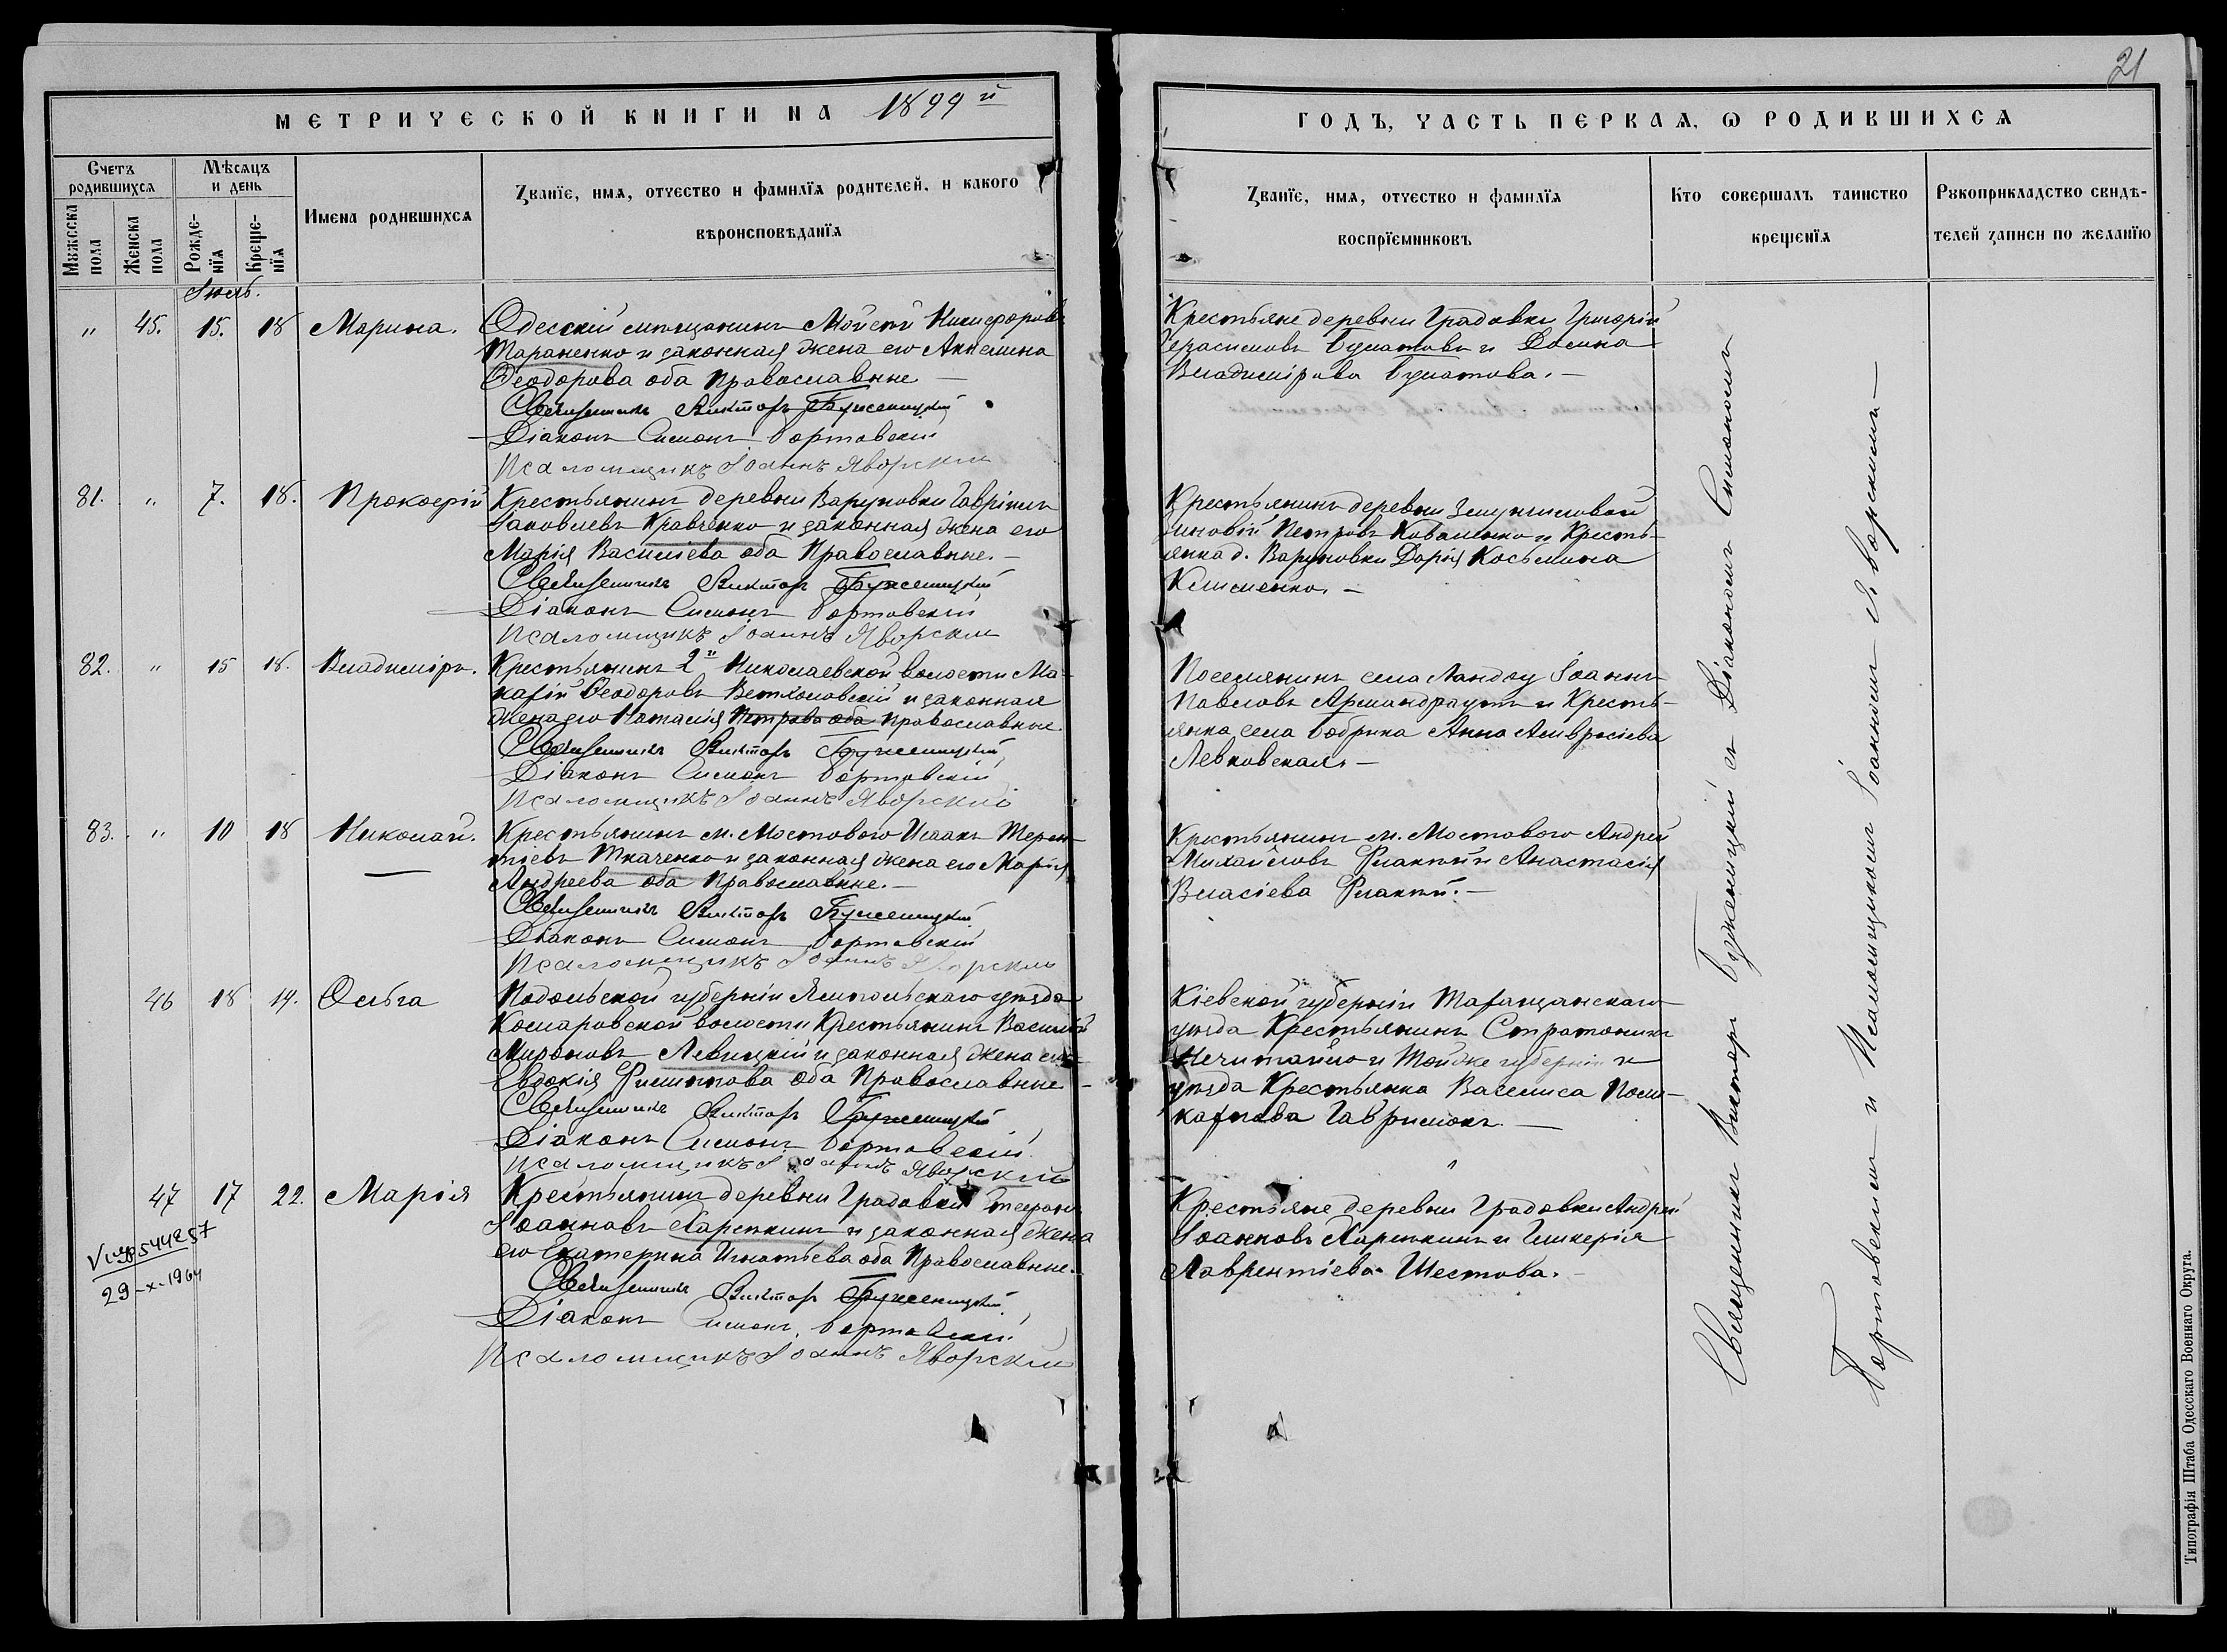 21
МЕТРИЧЕСКОЙ КНИГИ НА 1899 й
ГОДЪ, ЧАСТЬ ПЕРВАЯ, Ѡ РОДИВШИХСЯ
Счетъ родившихся
Мѣсяцъ и день
Мужеска пола
Женска пола
Рожде-нія
Креще-нія
Имена родившихся
Званіе, имя, отчество и фамилія родителей, и какого
вѣроисповѣданія
Званіе, имя, отчество и фамилія
воспріемниковъ
Кто совершалъ таинство
крещенія
Рукоприкладство свидѣ-
телей записи по желанію
Іюль.
" 45. 15. 18 Марина.
Одесскій мѣщанинъ Моисей Никифоровъ
Тараненко и законная жена его Акилина
Ѳеодорова оба Православные —
Священникъ Викторъ Буженицкій
Діаконъ Симонъ Бортовскій
Псаломщикъ Іоаннъ Яворскій
Крестьяне деревни Градовки Григорій
Герасимовъ Булатовъ и Домна
Владимірова Булатова. —
81. " 7. 18. Прокофій
Крестьянинъ деревни Варуновки Гавріилъ
Іаковлевъ Кравченко и законная жена его
Марія Василіева оба Православные. —
Священникъ Викторъ Буженицкій
Діаконъ Симонъ Бортовскій
Псаломщикъ Іоаннъ Яворскій
Крестьянинъ деревни
Зиновій Петровъ Коваленко и Кресть-
янка д. Варуновки Дарія Косьмина
Клименко. —
82. " 15 18. Владиміръ.
Крестьянинъ 2й Николаевской волости Ма-
карій Ѳеодоровъ и законная
жена его Наталія Петрова оба православные.
Священникъ Викторъ Буженицкій
Діаконъ Симонъ Бортовскій
Псаломщикъ Іоаннъ Яворскій
Поселянинъ села Ландау Іоаннъ
Павловъ и Кресть-
янка села Бобрика Анна Амвросіева
Левковская. —
83. " 10 18 Николай.
Крестьянинъ м. Мостового Исаакъ Терен-
тіевъ Ткаченко и законная жена его Марія
Андреева оба Православные. —
Священникъ Викторъ Буженицкій
Діаконъ Симонъ Бортовскій
Псаломщикъ Іоаннъ Яворскій
Крестьянинъ м. Мостового Андрей
Михайловъ и Анастасія
Власіева
46 18 19. Ольга
Подольской губерніи Ямпольскаго уѣзда
Комаровской волости Крестьянинъ Василій
Мироновъ Левицкій и законная жена его
Евдокія Филиппова оба Православные —
Священникъ Викторъ Буженицкій
Діаконъ Симонъ Бортовскій
Псаломщикъ Іоаннъ Яворскій
Кіевской губерніи Таращанскаго
уѣзда Крестьянинъ Стратоникъ
Нечитайло и Тойже губерніи и
уѣзда Крестьянка Василиса Поли-
карпова Гаврилюкъ —
47 17 22. Марія
Крестьянинъ деревни Градовки Стефанъ
Іоанновъ Карпкинъ и законная жена
его Екатерина Игнатьева оба Православные.
Священникъ Викторъ Буженицкій
Діаконъ Симонъ Бортовскій
Псаломщикъ Іоаннъ Яворскій
Крестьяне деревни Градовки Андрей
Іоанновъ Карпкинъ и Гликерія
Лаврентіева Шестова. —
544257
29-X-1964
Священникъ Викторъ Буженицкій съ Діакономъ Симономъ
Бортовскимъ и Псаломщикомъ Іоанномъ Яворскимъ —
Типографія Штаба Одесскаго Военнаго Округа.